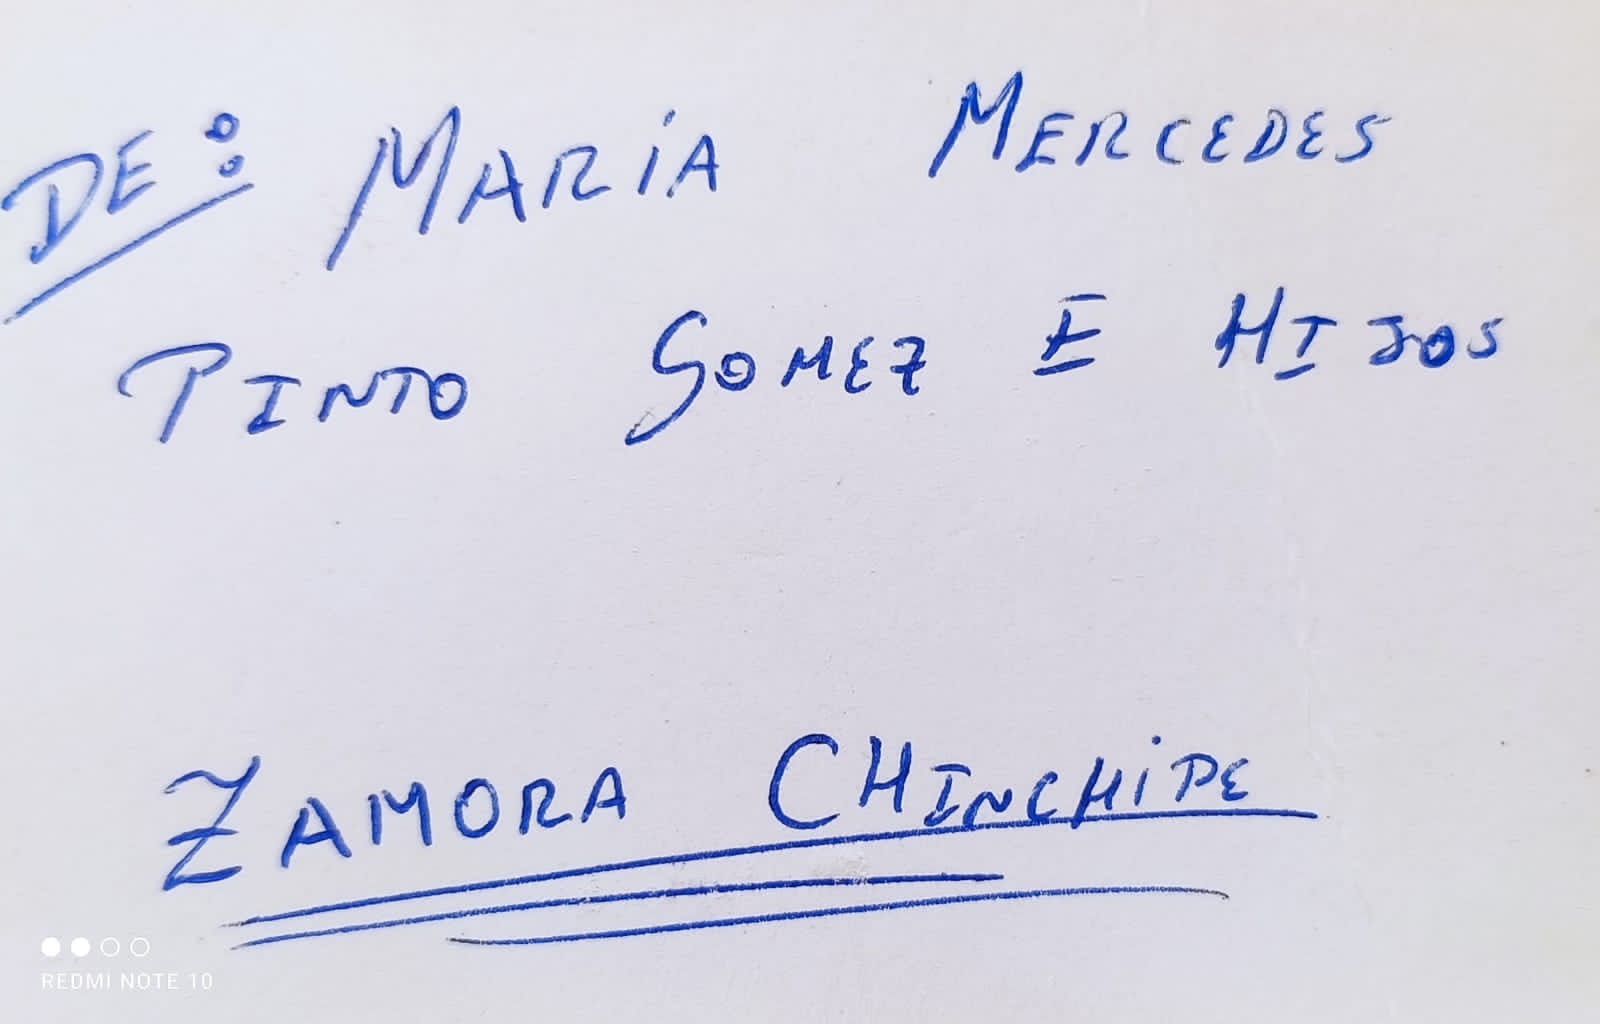 DE: MARíA MERCEDES
PINTO GOMEZ E HIJOS
ZAMORA CHINCHIPE
REDMI NOTE 10